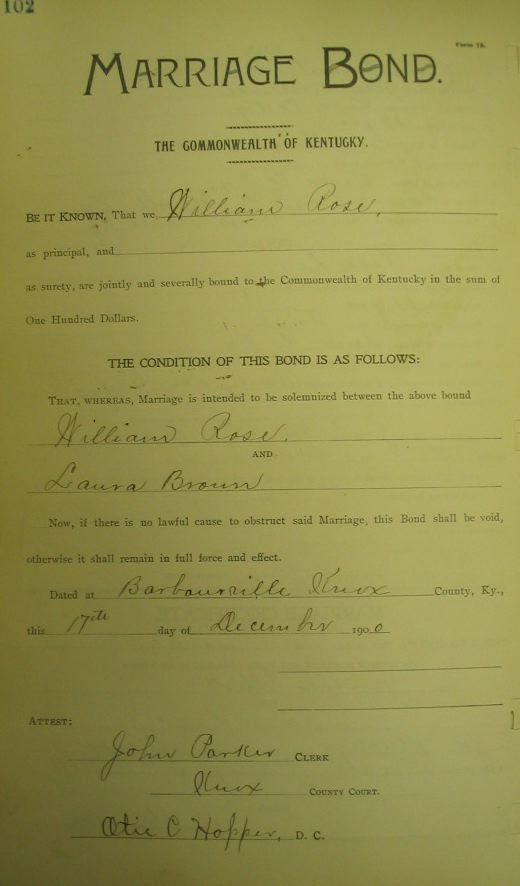 102
Form 75.
MARRIAGE BOND.
THE COMMONWEALTH OF KENTUCKY.
BE IT KNOWN, That we, William Rose,
as principal, and
as surety, are jointly and severally bound to the Commonwealth of Kentucky in the sum of
One Hundred Dollars.
THE CONDITION OF THIS BOND IS AS FOLLOWS:
THAT, WHEREAS, Marriage is intended to be solemnized between the above bound
William Rose.
AND
Laura Brown
Now, if there is no lawful cause to obstruct said Marriage, this Bond shall be void,
otherwise it shall remain in full force and effect.
Dated at Barbourville Knox County, Ky.,
this 17th day of December 1900
ATTEST:
John Parker CLERK
Knox COUNTY COURT.
Otie C Hopper, D. C.